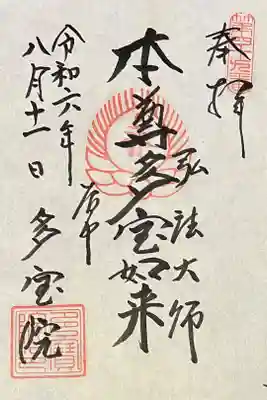 奉拝
本尊多宝如来
弘法大師
令和六年
八月十一日
多宝院